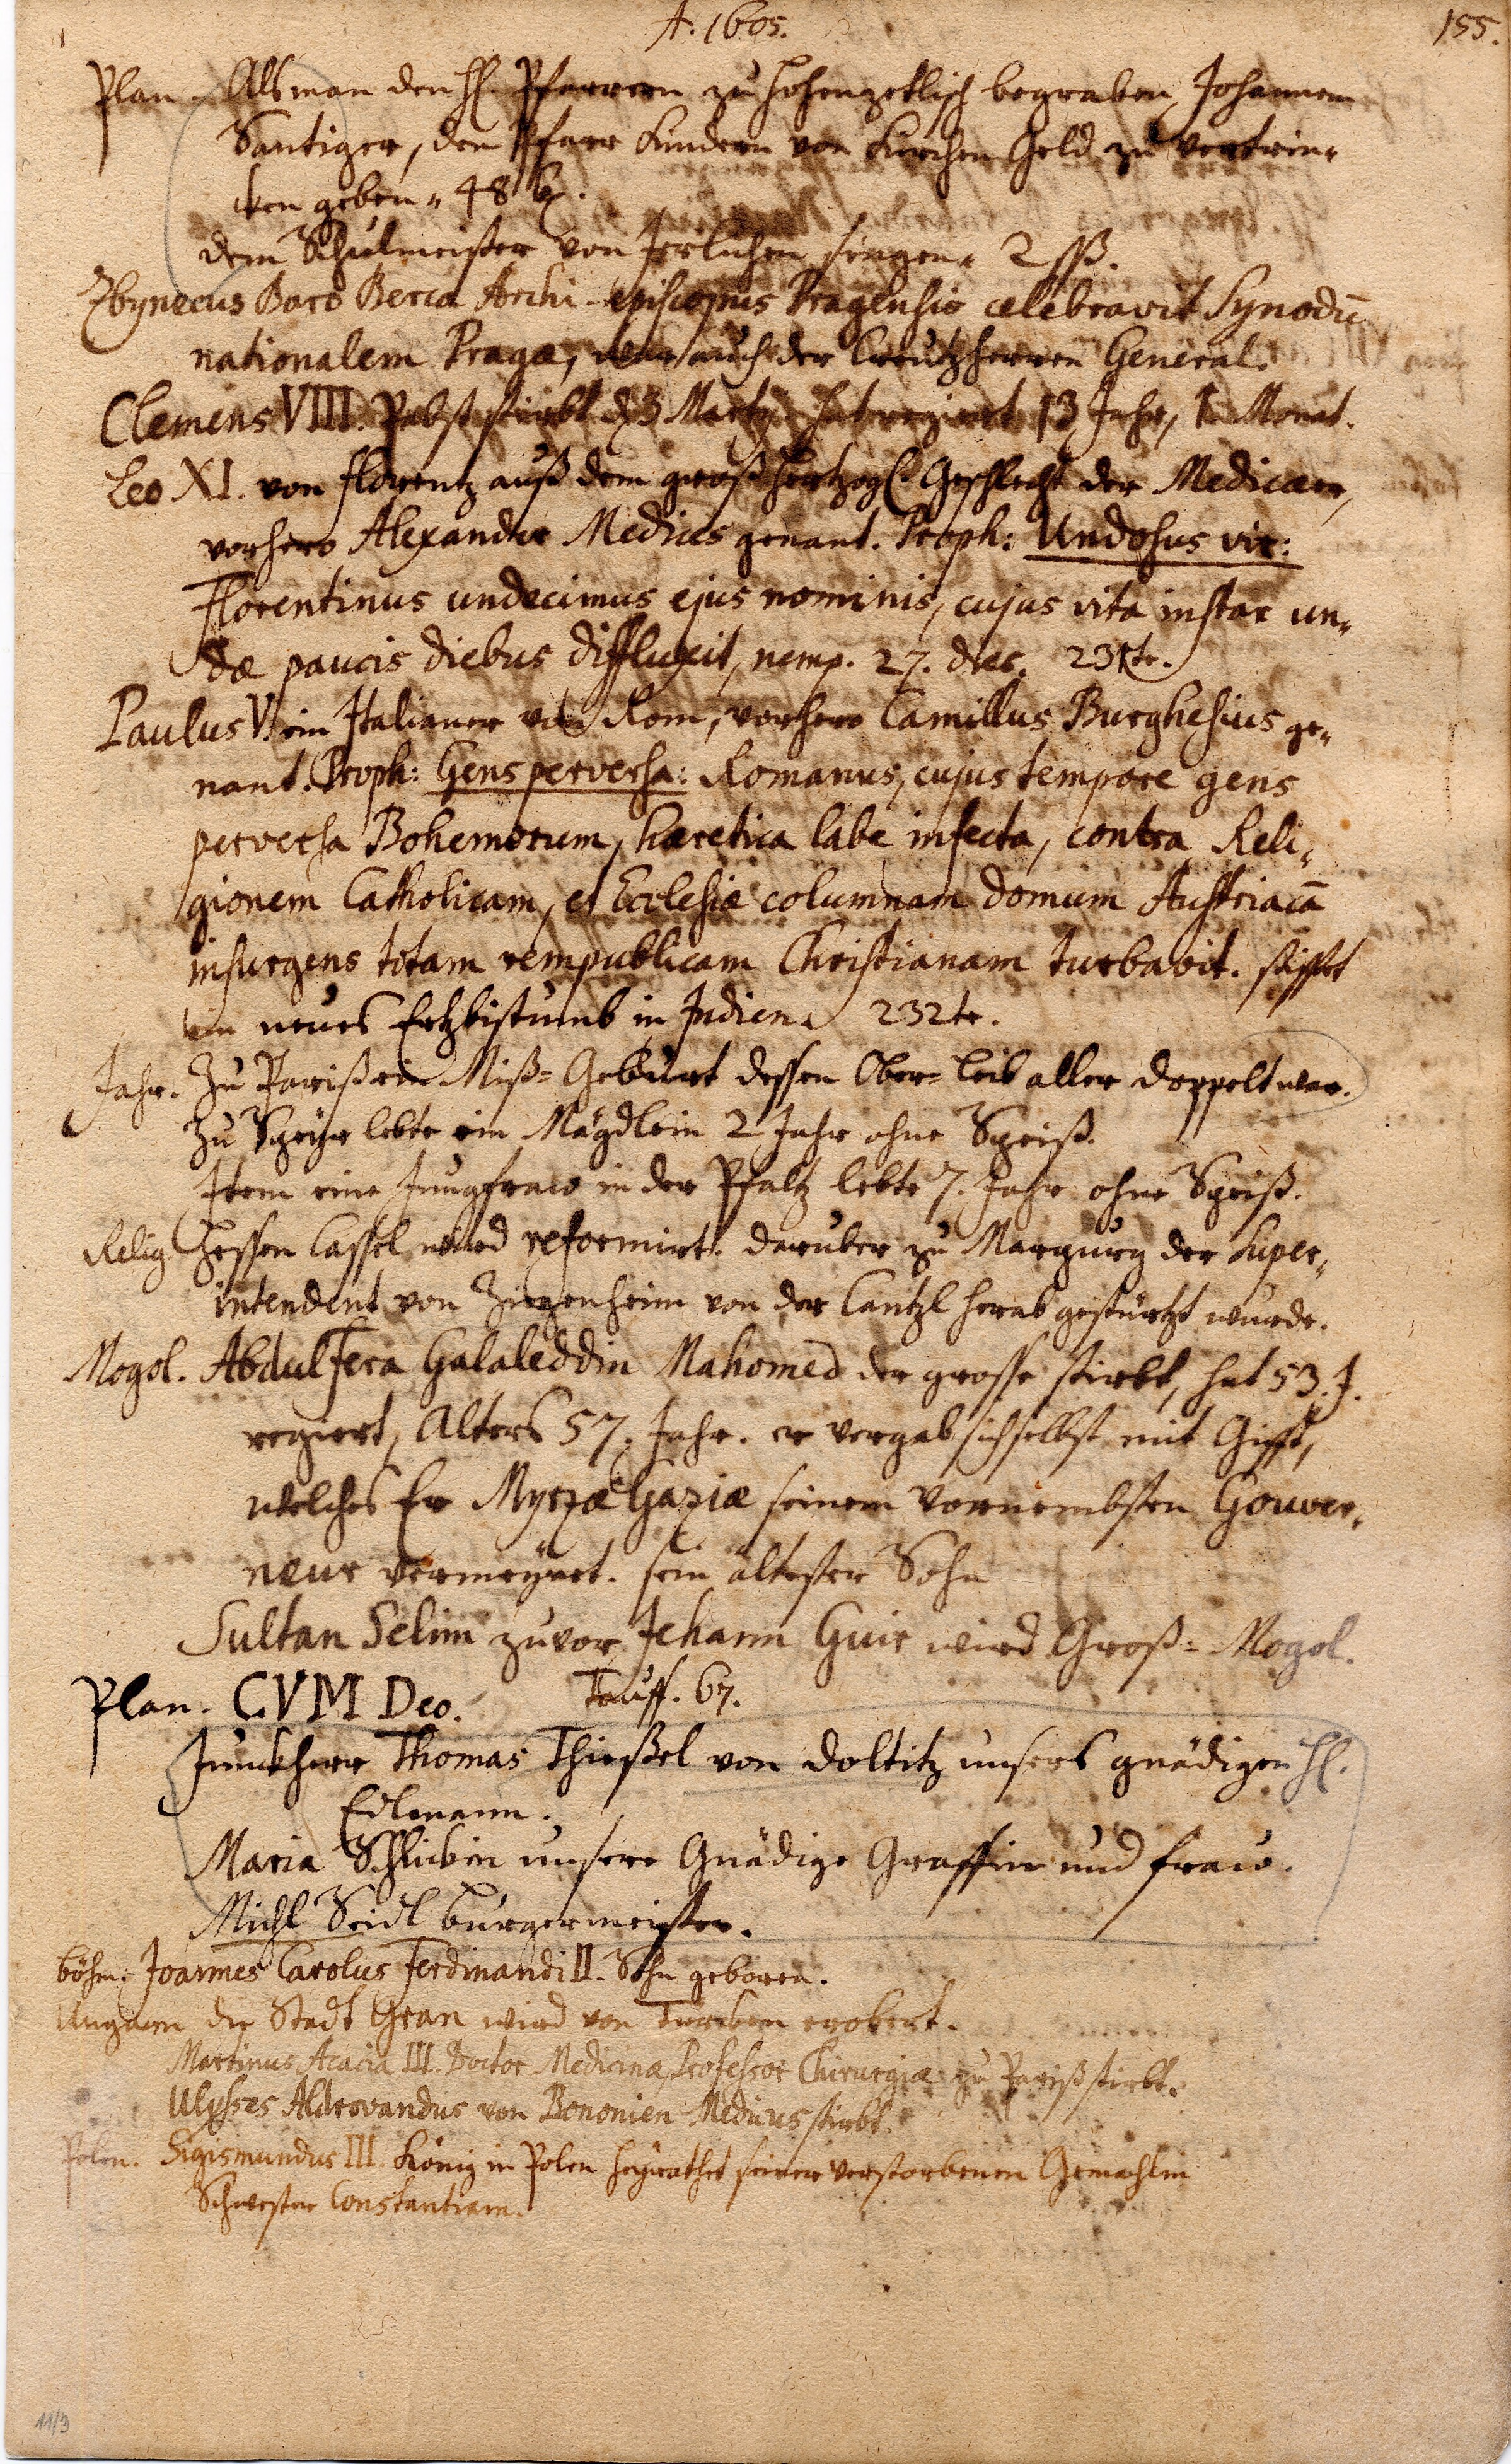 A. 1605.
155.
Plan. Als man den H. Pfarrern zu Hohenzetlisch begraben, Johannem
Santiger, den Pfarr Kindern von Kirchen Geld zu vertrin„
ken geben„ 48 kr.
dem Schulmeister von singen„ 2 ß.
Zbynecus Baro Berca Archi-episcopus Pragensis celebravit Synodū
nationalem Pragæ, war auch der Creutzherren General.
Clemens VIII. Pabst stirbt d. 3 Martz. hat regiert 13 Jahr, 1 Monat.
Leo XI. von Florentz auß dem groß Hertzogl. Geschlecht der Medicæer,
vorhero Alexander Medices genant. Proph: Undosus vir:
Florentinus undecimus ejus nominis, cujus vita instar un„
dæ paucis diebus diffluxit, nemp. 27. dies. 231te.
Paulus V. ein Italianer von Rom, vorhero Camillus Burghesius ge„
nant. Proph: Gens perversa: Romanus, cujus tempore gens
perversa Bohemorum, hæretica labe infecta, contra Reli„
gionem Catholicam, et Ecclesiæ columnam domum Austriacā
insurgens totam rempublicam Christianam turbavit. stifftet
ein neues Ertzbistumb in Indien. 232te.
Jahr. Zu Pariß ein Miß=Geburt dessen Ober=Leib aller doppelt war.
Zu Speÿr lebte ein Mägdlein 2 Jahr ohne Speiß.
Item eine Jungfraw in der Pfaltz lebte 7. Jahr ohne Speiß.
Relig. Hessen Cassel wird reformirt. darüber zu Margurg der Super„
intendent von Ziegenheim von der Cantzl herab gestürtzt wurde.
Mogol. Abdulfera Galaleddin Mahomed der grosse stirbt, hat 53. J.
regiert, Alters 57. Jahr. er vergab sich selbst mit Gifft,
welches Er Myrzæ Gaziæ seinem vornembsten Gouver„
neur vermeÿnet. sein ältester Sohn
Sultan Selim zuvor, Jehann Guir wird Groß=Mogol.
Plan. CVM Deo. Tauff. 67.
Junckherr Thomas Thießel von Doltitz unsers gnädigen H.
Edlmann.
Maria Schlickin unsere Gnädige Graffin und fraw.
Michl Seidl burgermeister.
böhm. Joannes Carolus Ferdinandi II. Sohn geboren.
Ungarn die Stadt Gran wird von Türcken erobert.
Martinus Acacia III. Doctor Medicinæ, Professor Chirurgiæ zu Pariß stirbt.
Ulysses Aldrovandus von Bononien Medicus stirbt.
Polen. Sigismundus III. König in Polen heÿrathet seiner verstorbenen Gemahlin
Schwester Constantiam.
11/3